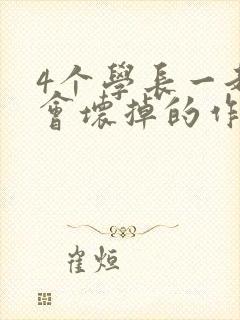 4个學長一
會壞掉的作
崔烜